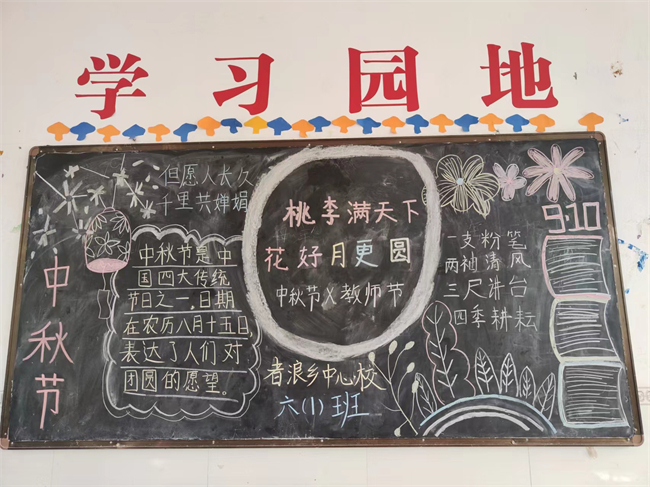 学习园地
但愿人长久
千里共婵娟
中秋节
中秋节是中
国四大传统
节日之一,日期
在农历八月十五日
表达了人们对
团圆的愿望。
桃李满天下
花好月更圆
中秋节X教师节
者浪乡中心校
六(1)班
9.10
一支粉笔
两袖清风
三尺讲台
四季耕耘